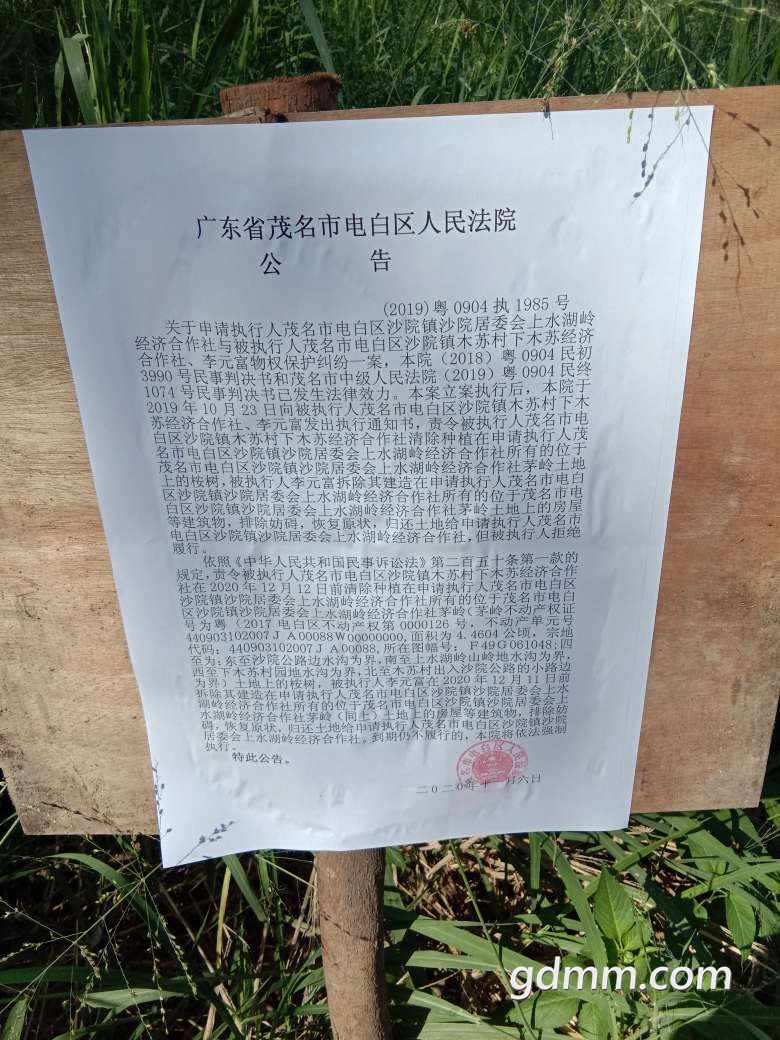 广东省茂名市电白区人民法院
公 告
(2019)粤 0904 执 1985 号
关于申请执行人茂名市电白区沙院镇沙院居委会上水湖岭
经济合作社与被执行人茂名市电白区沙院镇木苏村下木苏经济
合作社、李元富物权保护纠纷一案，本院（2018）粤 0904 民初
3990 号民事判决书和茂名市中级人民法院（2019）粤 0904 民终
1074 号民事判决书已发生法律效力。本案立案执行后，本院于
2019 年 10 月 23 日向被执行人茂名市电白区沙院镇木苏村下木
苏经济合作社、李元富发出执行通知书，责令被执行人茂名市电
白区沙院镇木苏村下木苏经济合作社清除种植在申请执行人茂
名市电白区沙院镇沙院居委会上水湖岭经济合作社所有的位于
茂名市电白区沙院镇沙院居委会上水湖岭经济合作社茅岭土地
上的桉树，被执行人李元富拆除其建造在申请执行人茂名市电白
区沙院镇沙院居委会上水湖岭经济合作社所有的位于茂名市电
白区沙院镇沙院居委会上水湖岭经济合作社茅岭土地上的房屋
等建筑物，排除妨碍，恢复原状，归还土地给申请执行人茂名市
电白区沙院镇沙院居委会上水湖岭经济合作社，但被执行人拒绝
履行。
依照《中华人民共和国民事诉讼法》第二百五十条第一款的
规定，责令被执行人茂名市电白区沙院镇木苏村下木苏经济合作
社在 2020 年 12 月 12 日前清除种植在申请执行人茂名市电白区
沙院镇沙院居委会上水湖岭经济合作社所有的位于茂名市电白
区沙院镇沙院居委会上水湖岭经济合作社茅岭（茅岭不动产权证
号为粤（2017 电白区不动产权第 0000126 号，不动产单元号
440903102007JA00088W00000000,面积为 4.4604 公顷，宗地
代码：440903102007JA00088,所在图幅号：F49G061048;四
至为:东至沙院公路边水沟为界,南至上水湖岭山岭地水沟为界,
西至下木苏村园地水沟为界,北至木苏村出入沙院公路的小路边
为界）土地上的桉树，被执行人李元富在 2020 年 12 月 11 日前
拆除其建造在申请执行人茂名市电白区沙院镇沙院居委会上水
湖岭经济合作社所有的位于茂名市电白区沙院镇沙院居委会上
水湖岭经济合作社茅岭（同上）土地上的房屋等建筑物，排除妨
碍，恢复原状，归还土地给申请执行人茂名市电白区沙院镇沙院
居委会上水湖岭经济合作社。到期仍不履行的，本院将依法强制
执行。
特此公告。
二〇二〇年十一月六日
gdmm.com